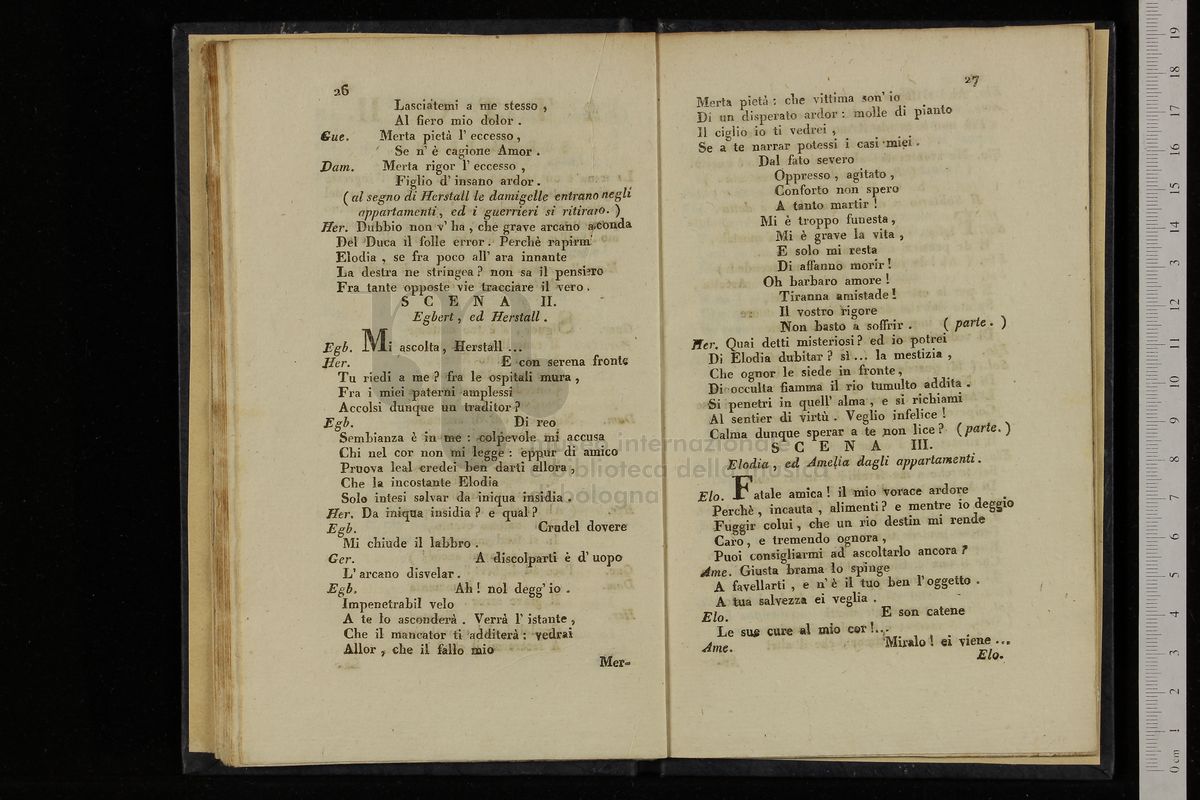 26
Lasciatemi a me stesso ,
Al fiero mio dolor .
Gue. Merta pietà l' eccesso ,
Se n' è cagione Amor .
Dam. Merta rigor l' eccesso ,
Figlio d' insano ardor .
( al segno di Herstall le damigelle entrano negli
appartamenti, ed i guerrieri si ritirano. )
Her. Dubbio non v' ha , che grave arcano asconda
Del Duca il folle error . Perchè rapirmi
Elodia , se fra poco all' ara innante
La destra ne stringea ? non sa il pensiero
Fra tante opposte vie tracciare il vero .
SCENA II.
Egbert, ed Herstall .
Egb. Mi ascolta , Herstall ...
Her. E con serena fronte
Tu riedi a me ? fra le ospitali mura ,
Fra i miei paterni amplessi
Accolsi dunque un traditor ?
Egb. Di reo
Sembianza è in me : colpevole mi accusa
Chi nel cor non mi legge : eppur di amico
Pruova leal credei ben darti allora ,
Che la incostante Elodia
Solo intesi salvar da iniqua insidia .
Her. Da iniqua insidia ? e qual ?
Egb. Crudel dovere
Mi chiude il labbro .
Ger. A discolparti è d' uopo
L' arcano disvelar .
Egb. Ah ! nol degg' io .
Impenetrabil velo
A te lo asconderà . Verrà l' istante ,
Che il mancator ti additerà : vedrai
Allor , che il fallo mio
Mer-
27
Merta pietà : che vittima son' io
Di un disperato ardor : molle di pianto
Il ciglio io ti vedrei ,
Se a te narrar potessi i casi miei .
Dal fato severo
Oppresso , agitato ,
Conforto non spero
A tanto martir !
Mi è troppo funesta ,
Mi è grave la vita ,
E solo mi resta
Di affanno morir !
Oh barbaro amore !
Tiranna amistade !
Il vostro rigore
Non basto a soffrir . ( parte . )
Her. Quai detti misteriosi ? ed io potrei
Di Elodia dubitar ? sì ... la mestizia ,
Che ognor le siede in fronte ,
Di occulta fiamma il rio tumulto addita .
Si penetri in quell' alma , e si richiami
Al sentier di virtù . Veglio infelice !
Calma dunque sperar a te non lice ? ( parte. )
SCENA III.
Elodia , ed Amelia dagli appartamenti .
Elo. Fatale amica ! il mio vorace ardore
Perchè , incauta , alimenti ? e mentre io deggio
Fuggir colui , che un rio destin mi rende
Caro , e tremendo ognora ,
Puoi consigliarmi ad ascoltarlo ancora ?
Ame. Giusta brama lo spinge
A favellarti , e n' è il tuo ben l' oggetto .
A tua salvezza ei veglia .
Elo. E son catene
Le sue cure al mio cor !...
Ame. Miralo ! ei viene ...
Elo.
museo internazionale
e biblioteca della musica
di bologna